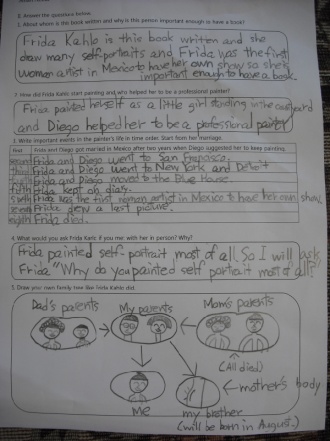 2. Answer the questions below.
1. About whom is the book written and why is this person important enough to have a book?
Frida Kahlo is this book written and she
draw many self-portraits and Frida was the first
woman artist in Mexico to have her own show so she's
important enough to have a book.
2. How did Frida Kahlo start painting and who helped her to be a professional painter?
Frida painted herself as a little girl standing in the courtyard
and Diego helped her to be a professional painter
3. Write important events in the painter's life in time order. Start from her marriage.
First Frida and Diego got married in Mexico after two years when Diego suggested her to keep painting.
second Frida and Diego went to San Francisco.
third Frida and Diego went to New York and Detroit
Frida and Diego moved to the Blue House.
fifth Frida kept an diary.
sixth Frida was the first woman artist in Mexico to have her own show.
seventh Frida drew a last picture.
eighth Frida died.
4. What would you ask Frida Karlo if you met with her in person? Why?
Frida painted self-portrait most of all. So I will ask
Frida "Why do you painted self portrait most of all?"
5. Draw your own family tree like Frida Kahlo did.
Dad's parents My parents Mom's parents
(All died)
mother's body
me my brother
(will be born in August.)